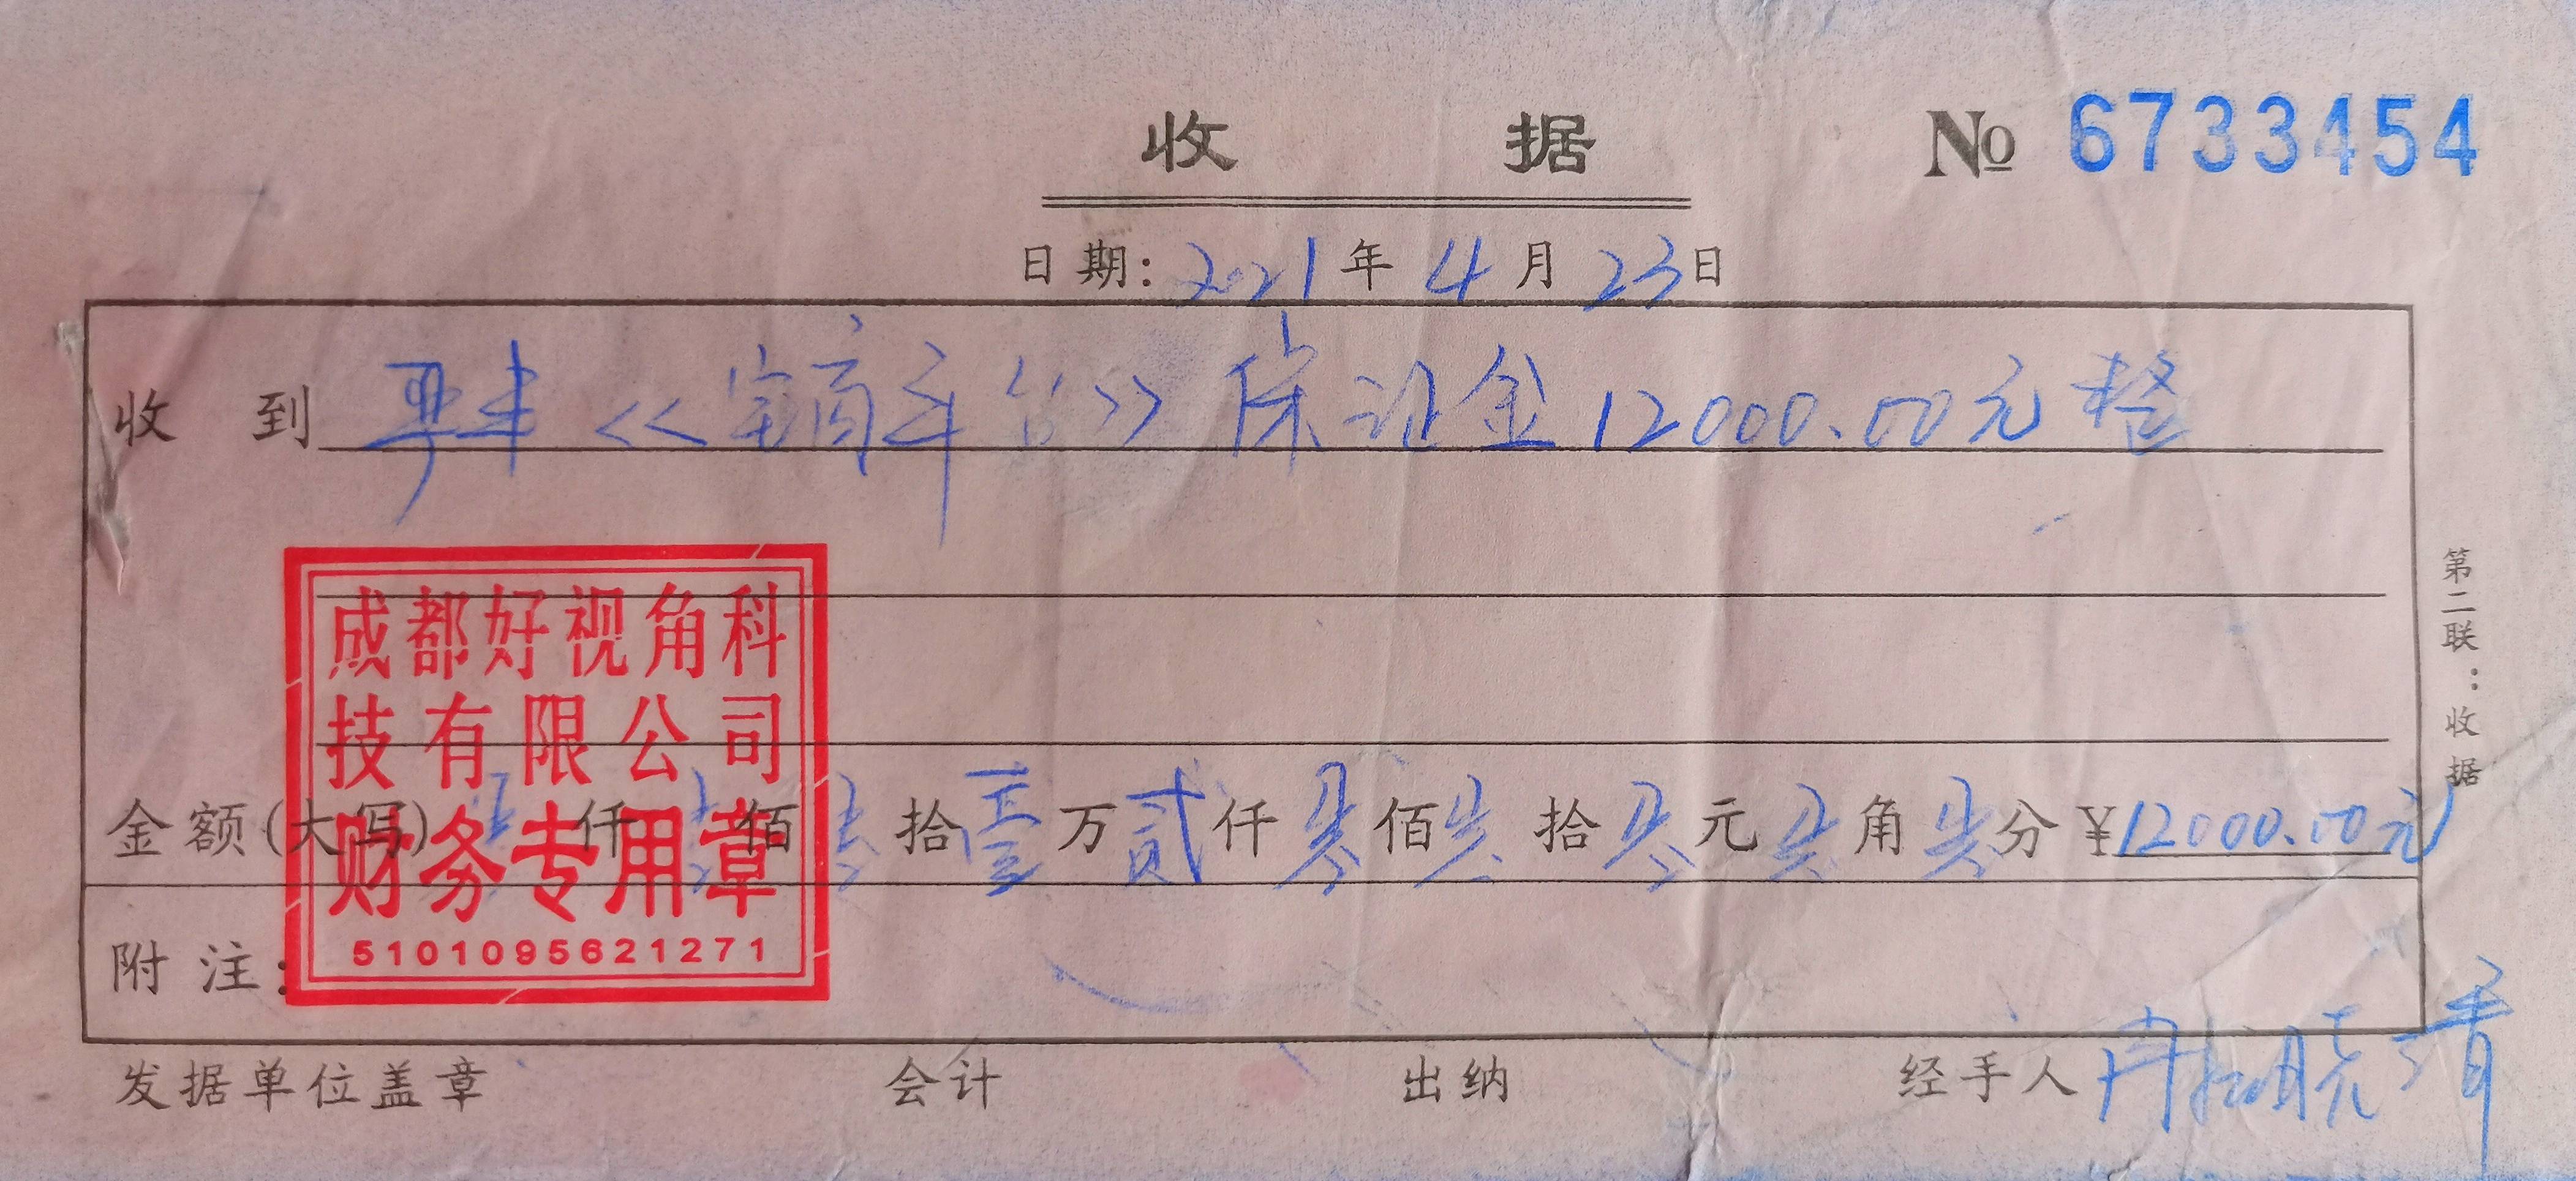 收 据
№ 6733454
日期: 2021 年 4 月 23 日
收 到 《宅商平台》保证金12000.00元整
成都好视角科
技有限公司
财务专用章
5101095621271
金额(大写) 零 仟 零 佰 零 拾 壹 万 贰 仟 零 佰 零 拾 零 元 零 角 零 分 ¥12000.00元
附 注:
发据单位盖章 会计 出纳 经手人 冉 晓清
第二联:收据